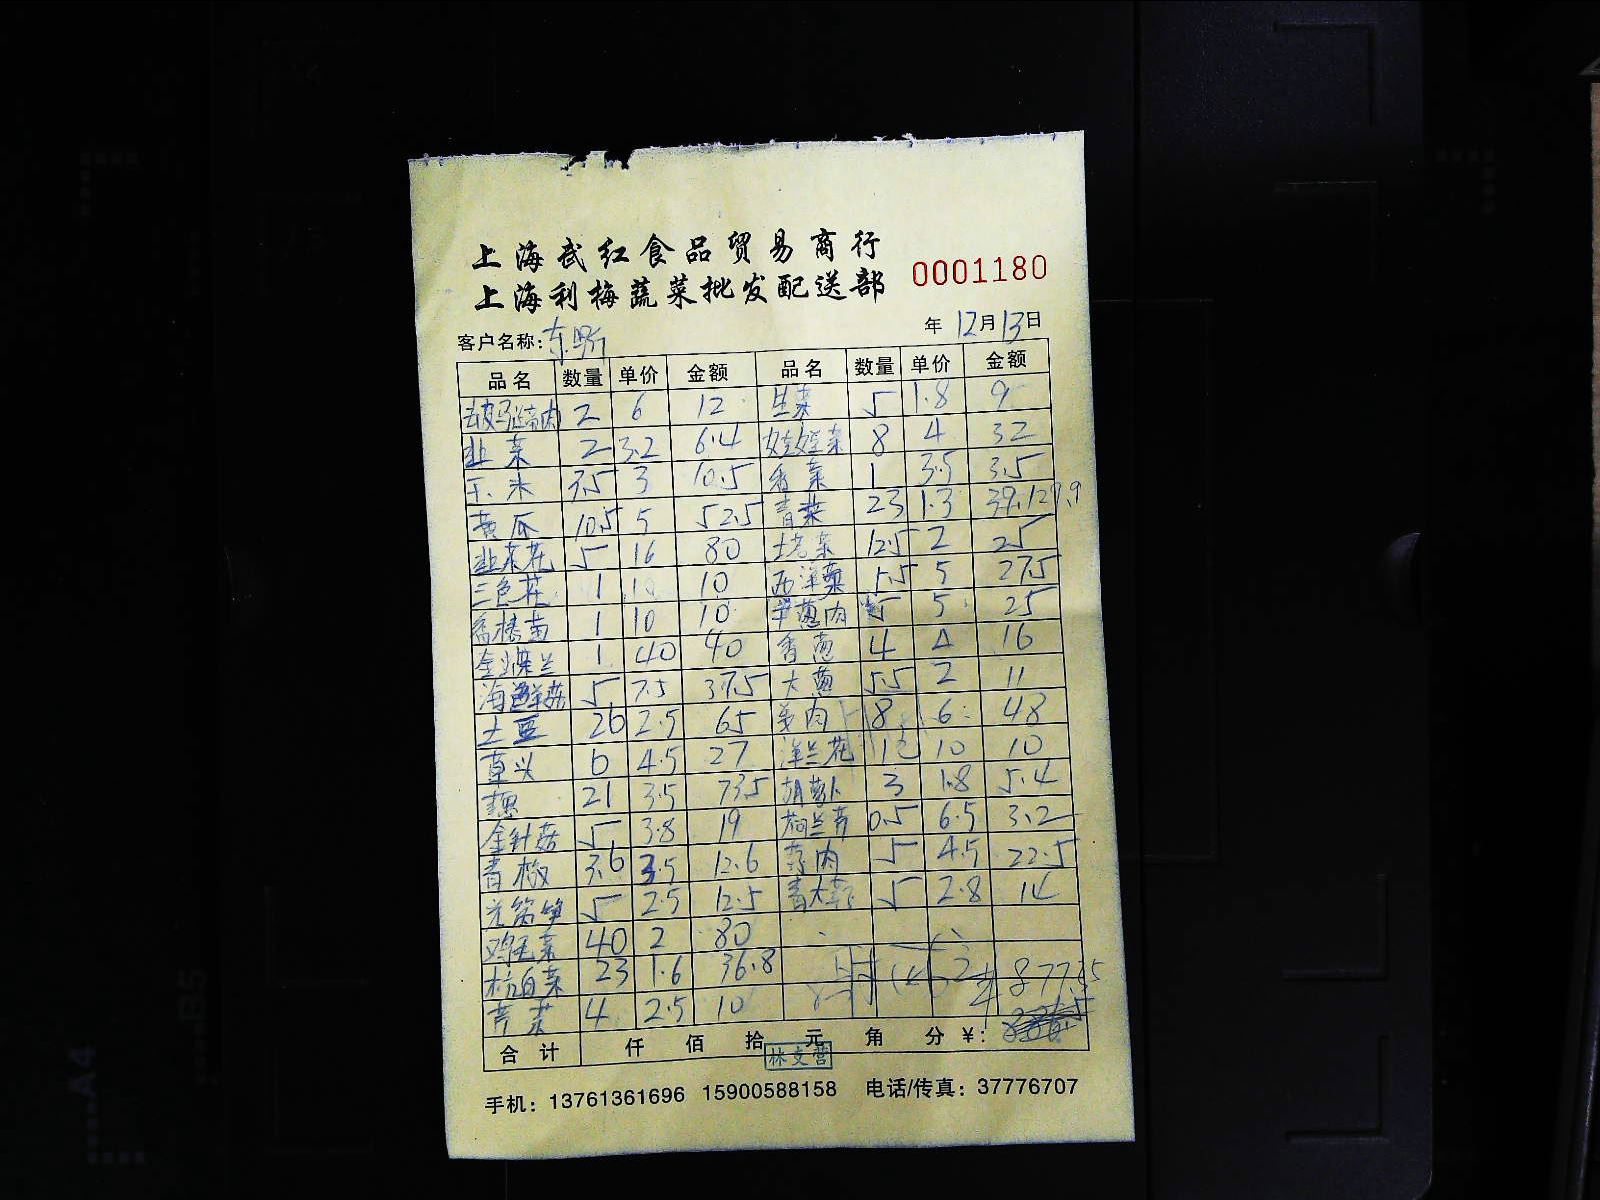 上海武红食品贸易商行
上海利梅蔬菜批发配送部 0001180
客户名称: 东 年 12月13日
品名 数量 单价 金额 品名 数量 单价 金额
去皮马蹄肉 2 6 12 生菜 5 1.8 9
韭菜 2 3.2 6.4 娃娃菜 8 4 32
玉米 3.5 3 10.5 香菜 1 3.5 3.5
黄瓜 10.5 5 52.5 青菜 23 1.3 29.9
韭菜花 5 16 80 菜 12.5 2 25
三色花 1 10 10 西洋菜 5.5 5 27.5
1 10 10 洋葱肉 5 5 25
金 兰 1 40 40 香葱 4 4 16
海鲜菇 5 7.5 37.5 大葱 5.5 2 11
土豆 26 2.5 65 肉 8 6 48
草头 6 4.5 27 洋兰花 1 10 10
藕 21 3.5 73.5 胡萝卜 3 1.8 5.4
金针菇 5 3.8 19 荷兰芹 0.5 6.5 3.2
青椒 3.6 3.5 12.6 肉 5 4.5 22.5
5 2.5 12.5 青大 5 2.8 14
鸡毛菜 40 2 80
杭白菜 23 1.6 36.8
芹菜 4 2.5 10
合计 仟 佰 拾 元 角 分 ¥:
林文营
手机: 13761361696 15900588158 电话/传真: 37776707